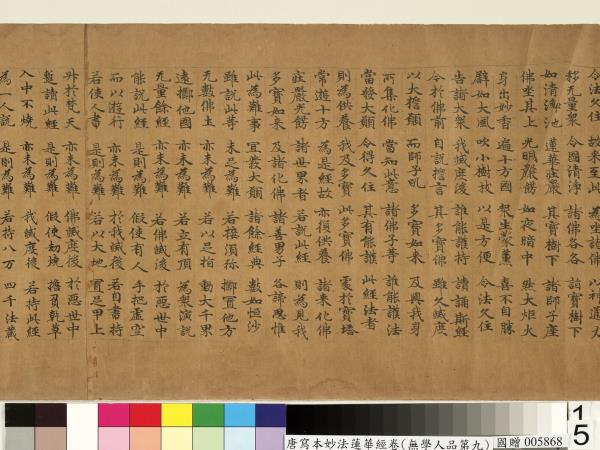 令法久住 故來至此 為坐諸佛 以神通力
移無量眾 令國清淨 諸佛各各 詣寶樹下
如清淨池 蓮華莊嚴 其寶樹下 諸師子座
佛坐其上 光明嚴飾 如夜暗中 燃大炬火
身出妙香 遍十方國 眾生蒙薰 喜不自勝
譬如大風 吹小樹枝 以是方便 令法久住
告諸大眾 我滅度後 誰能護持 讀誦斯經
今於佛前 自說誓言 其多寶佛 雖久滅度
以大誓願 而師子吼 多寶如來 及與我身
所集化佛 當知此意 諸佛子等 誰能護法
當發大願 令得久住 其有能護 此經法者
則為供養 我及多寶 此多寶佛 處於寶塔
常遊十方 為是經故 亦復供養 諸來化佛
莊嚴光飾 諸世界者 若說此經 則為見我
多寶如來 及諸化佛 諸善男子 各諦思惟
此為難事 宜發大願 諸餘經典 數如恒沙
雖說此等 未足為難 若接須彌 擲置他方
無數佛土 亦未為難 若以足指 動大千界
遠擲他國 亦未為難 若立有頂 為眾演說
無量餘經 亦未為難 若佛滅後 於惡世中
能說此經 是則為難 假使有人 手把虛空
而以遊行 亦未為難 於我滅後 若自書持
若使人書 是則為難 若以大地 置足甲上
昇於梵天 亦未為難 佛滅度後 於惡世中
暫讀此經 是則為難 假使劫燒 擔負乾草
入中不燒 亦未為難 我滅度後 若持此經
為一人說 是則為難 若持八万 四千法藏
唐寫本妙法蓮華經卷(無學人品第九) 國贈 005868
15